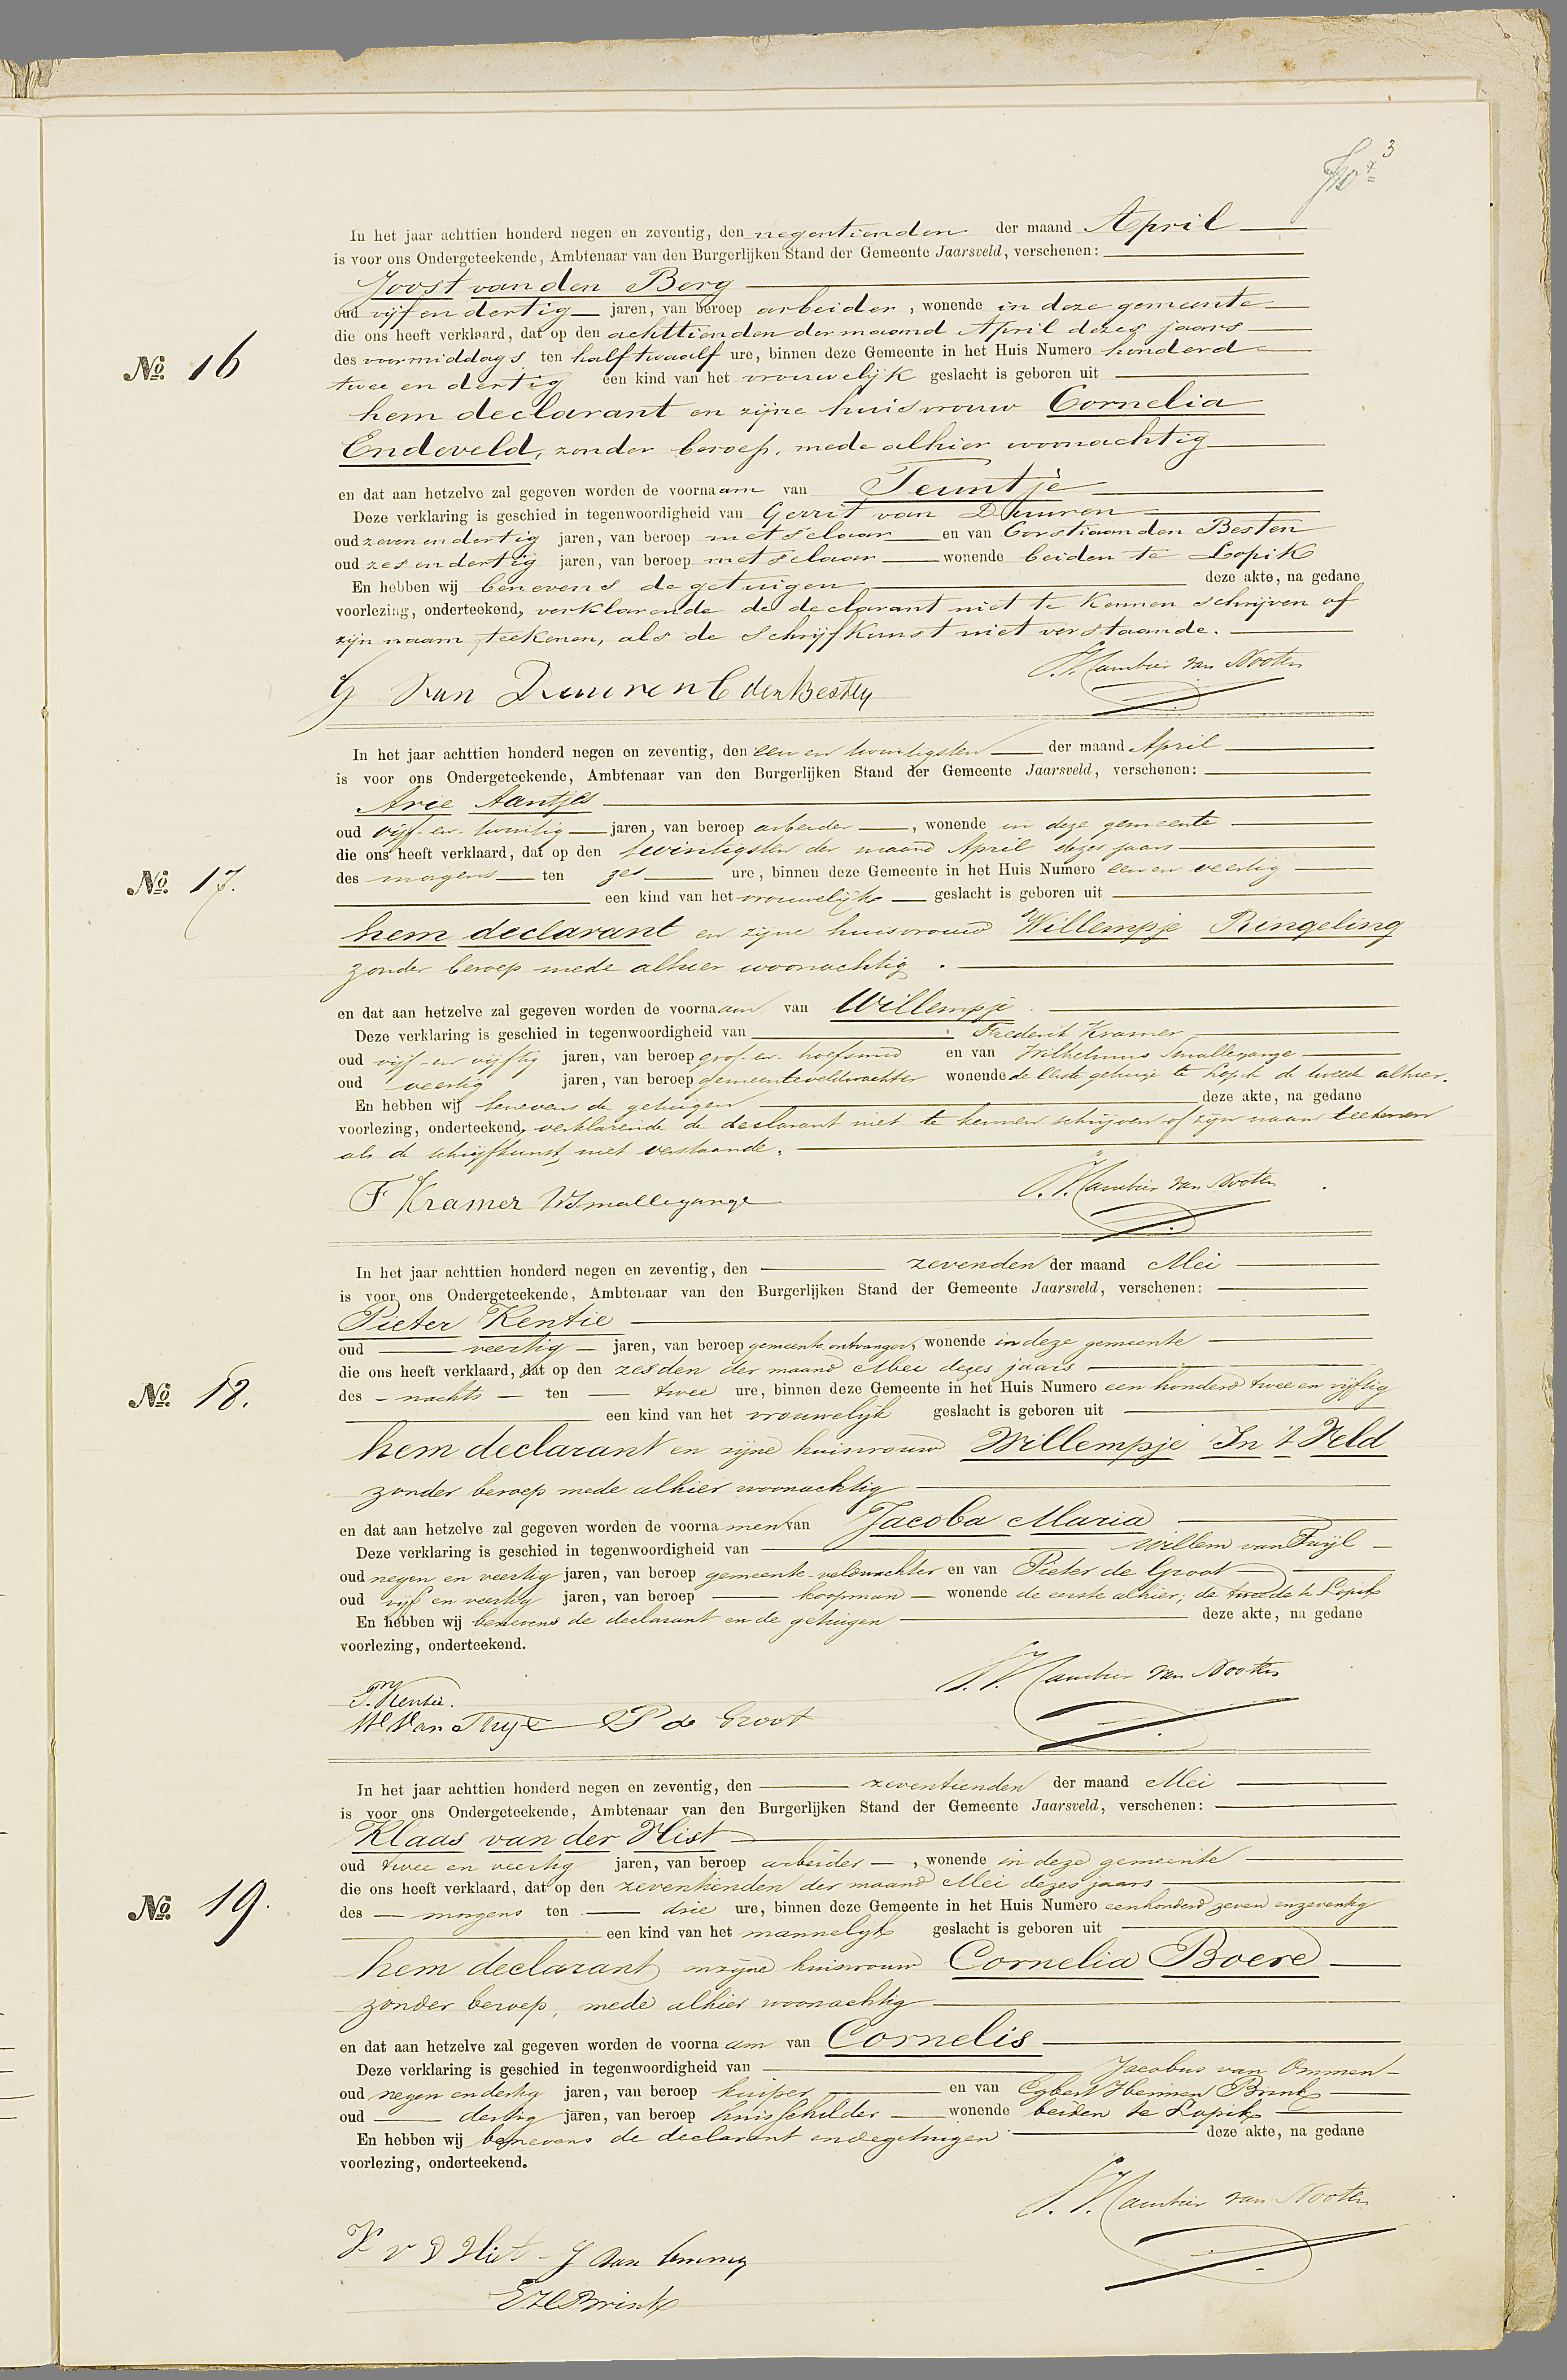 3
In het jaar achttien honderd negen en zeventig, den negentienden der maand April
is voor ons Ondergeteekende, Ambtenaar van den Burgerlijken Stand der Gemeente Jaarsveld, verschenen:
Joost van den Berg
oud vijf en dertig jaren, van beroep arbeider, wonende in deze gemeente
die ons heeft verklaard, dat op den achttienden der maand April dezes jaars
des voormiddags ten half twaalf ure, binnen deze Gemeente in het Huis Numero honderd
No. 16
twee en dertig een kind van het vrouwelijk geslacht is geboren uit
hem declarant en zijne huisvrouw Cornelia
Endeveld, zonder beroep, mede alhier woonachtig
en dat aan hetzelve zal gegeven worden de voornaam van Teuntje
Deze verklaring is geschied in tegenwoordigheid van Gerrit van Duuren
oud zeven en dertig jaren, van beroep metselaar en van Corstiaan den Besten
oud zes en dertig jaren, van beroep metselaar wonende beiden te Lopik
En hebben wij benevens de getuigen deze akte, na gedane
voorlezing, onderteekend, verklarende de declarant niet te kunnen schrijven of
zijn naam teekenen, als de schrijfkunst niet verstaande.
G Van Duuren C den Besten Cambier van Nooten
In het jaar achttien honderd negen en zeventig, den een en twintigsten der maand April
is voor ons Ondergeteekende, Ambtenaar van den Burgerlijken Stand der Gemeente Jaarsveld, verschenen:
Arie Aantjes
oud vijf en twintig jaren, van beroep arbeider, wonende in deze gemeente
die ons heeft verklaard, dat op den twintigsten der maand April dezes jaars
No. 17.
des morgens ten zes ure, binnen deze Gemeente in het Huis Numero een en veertig
een kind van het vrouwelijk geslacht is geboren uit
hem declarant en zijne huisvrouw Willempje Ringeling
zonder beroep mede alhier woonachtig.
en dat aan hetzelve zal gegeven worden de voornaam van Willempje
Deze verklaring is geschied in tegenwoordigheid van Frederik Kramer
oud vijf en vijftig jaren, van beroep grof en hoefsmid en van Wilhelmus Smallegange
oud veertig jaren, van beroep gemeenteveldwachter wonende de eerste getuige te Lopik de tweede alhier.
En hebben wij benevens de getuigen deze akte, na gedane
voorlezing, onderteekend, verklarende de declarant niet te kunnen schrijven of zijn naam teekenen
als de schrijfkunst niet verstaande.
F Kramer WSmallegange Cambier van Nooten
In het jaar achttien honderd negen en zeventig, den zevenden der maand Mei
is voor ons Ondergeteekende, Ambtenaar van den Burgerlijken Stand der Gemeente Jaarsveld, verschenen:
Pieter Kentie
oud veertig jaren, van beroep gemeente ontvanger, wonende in deze gemeente
die ons heeft verklaard, dat op den zesden der maand Mei dezes jaars
No. 18.
des nachts ten twee ure, binnen deze Gemeente in het Huis Numero een honderd twee en vijftig
een kind van het vrouwelijk geslacht is geboren uit
hem declarant en zijne huisvrouw Willempje In 't Veld
zonder beroep mede alhier woonachtig
en dat aan hetzelve zal gegeven worden de voornamen van Jacoba Maria
Deze verklaring is geschied in tegenwoordigheid van Willem van Tuijl
oud negen en veertig jaren, van beroep gemeente-veldwachter en van Pieter de Groot
oud vijf en veertig jaren, van beroep koopman wonende de eerste alhier; de tweede te Lopik
En hebben wij benevens de declarant en de getuigen deze akte, na gedane
voorlezing, onderteekend.
P. Kentie. Cambier van Nooten
W Van Tuyl P de Groot
In het jaar achttien honderd negen en zeventig, den zeventienden der maand Mei
is voor ons Ondergeteekende, Ambtenaar van den Burgerlijken Stand der Gemeente Jaarsveld, verschenen:
Klaas van der Hist
oud twee en veertig jaren, van beroep arbeider, wonende in deze gemeente
die ons heeft verklaard, dat op den zeventienden der maand Mei dezes jaars
No. 19.
des morgens ten drie ure, binnen deze Gemeente in het Huis Numero eenhonderd zeven en zeventig
een kind van het mannelijk geslacht is geboren uit
hem declarant en zijne huisvrouw Cornelia Boere
zonder beroep, mede alhier woonachtig
en dat aan hetzelve zal gegeven worden de voornaam van Cornelis
Deze verklaring is geschied in tegenwoordigheid van Jacobus van Ommen
oud negen en dertig jaren, van beroep kuiper en van Egbert Hermen Brink
oud dertig jaren, van beroep huisschilder wonende beiden te Lopik
En hebben wij benevens de declarant en de getuigen deze akte, na gedane
voorlezing, onderteekend.
Cambier van Nooten
K v D Hist J van Ommen
EHBrink